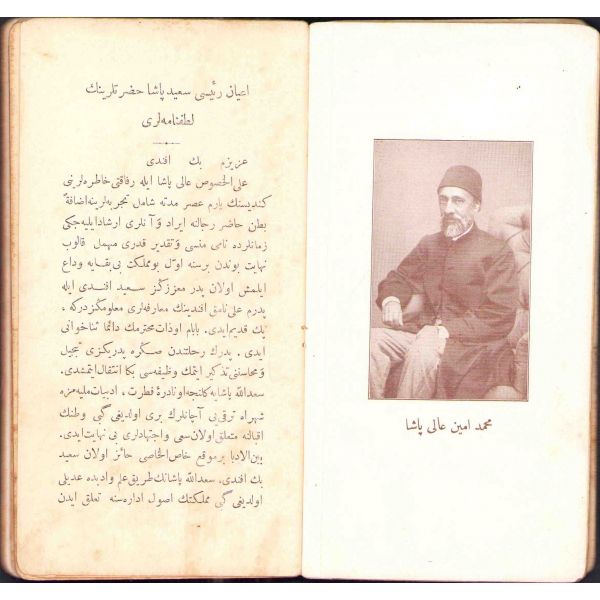 اعیان رئیسی سعید پاشا حضرتلرینك
لطفنامه‌لری
عزیزم بك افندی
علی الخصوص عالی پاشا ایله رفاقتی خاطره‌لرینی
كندیسنك یارم عصر مدته شامل تجربه‌لرینه اضافةً
بطن حاضر رجالنه ایراد و آنلری ارشاد ایلیه‌جكی
زمانلرده نامی منسی و تقدیر قدری مهمل قالوب
نهایت بوندن برسنه اول بو مملكت بی بقایه وداع
ایلمش اولان پدر معززكز سعید افندی ایله
پدرم علی نامق افندینك معارفه‌لری معلومكزدركه ،
پك قدیم ایدی . بابام اوذات محترمك دائما ثناخوانی
ایدی . پدرك رحلتندن صكره پدریكزی تبجیل
و محاسننی تذكیر ایتمك وظیفه‌سی بكا انتقال ایتمشدی.
سعدالله پاشایه كلنجه اونادرۀ فطرت ، ادبیات ملیه‌مزه
شهراه ترقی‌یی آچانلرك بری اولدیغی گبی وطنك
اقبالنه متعلق اولان سعی و اجتهادلری بی نهایت ایدی.
بین الادبا بر موقع خاص الخاصی حائز اولان سعید
بك افندی، سعدالله پاشانك طریق علم و ادبده عدیلی
اولدیغی گبی مملكتك اصول اداره‌سنه تعلق ایدن
محمد امین عالی پاشا